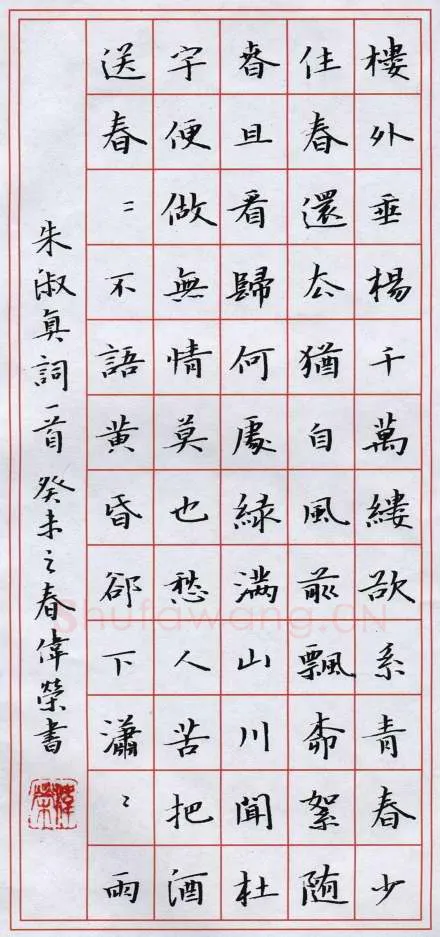 樓外垂楊千萬縷欲系青春少
住春還去猶自風前飄柳絮随
春且看歸何處緑满山川聞杜
宇便做無情莫也愁人苦把酒
送春〻不語黄昏卻下瀟〻雨
朱淑真詞一首 癸未之春偉榮書
偉榮
Shufawang.CN